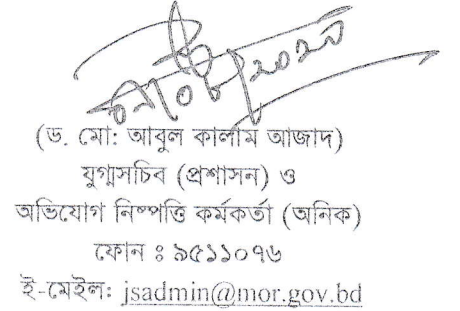 (ড. মো: আবুল কালাম আজাদ)
যুগ্মসচিব (প্রশাসন) ও
অভিযোগ নিষ্পত্তি কর্মকর্তা (অনিক)
ফোন ঃ ৯৫১১০৭৬
ই-মেইল: jsadmin@mor.gov.bd